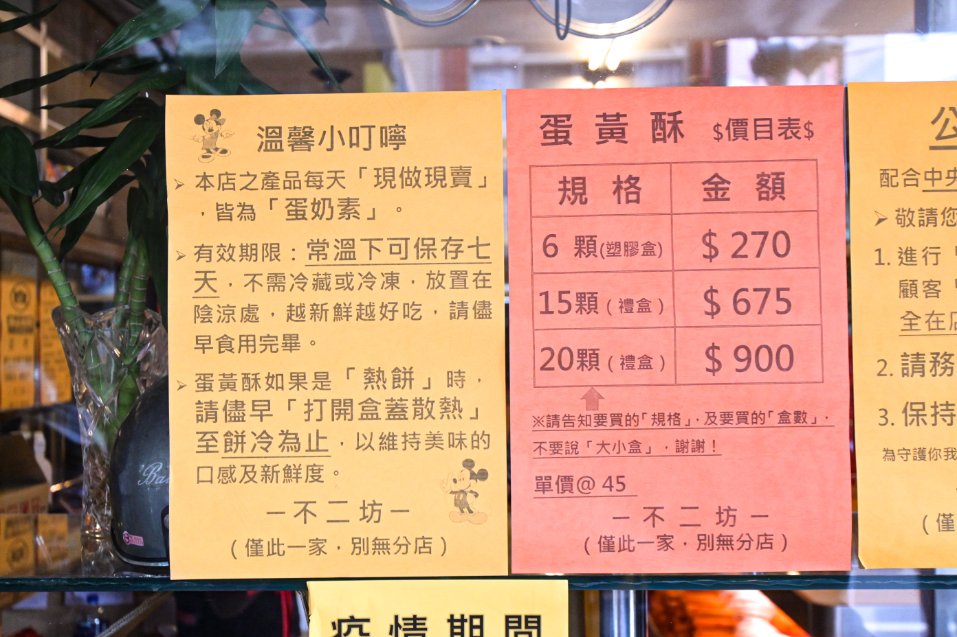 溫馨小叮嚀
➢ 本店之產品每天「現做現賣」
，皆為「蛋奶素」。
➢ 有效期限：常溫下可保存七
天，不需冷藏或冷凍，放置在
陰涼處，越新鮮越好吃，請儘
早食用完畢。
➢ 蛋黃酥如果是「熱餅」時，
請儘早「打開盒蓋散熱」
至餅冷為止，以維持美味的
口感及新鮮度。
－不二坊－
（僅此一家，別無分店）
蛋黃酥 $價目表$
規格 金額
6 顆(塑膠盒) $ 270
15顆(禮盒) $ 675
20顆(禮盒) $ 900
※請告知要買的「規格」，及要買的「盒數」，
不要說「大小盒」，謝謝！
單價@ 45
－不二坊－
（僅此一家，別無分店）
公
配合中央
➢ 敬請您
1. 進行
顧客
全在店
2. 請務
3. 保持
為守護你我
（僅
疫情期間